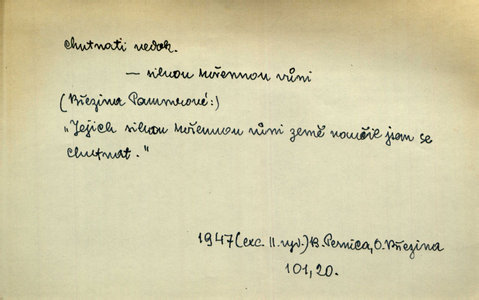 chutnati nedok.
— silnou kořennou vůni
(Březina Pammrové:)
„Jejich silnou kořennou vůni země naučil jsem se
chutnat."
1947 (exc. II. vyd.) B. Pernica, O. Březina
101, 20.